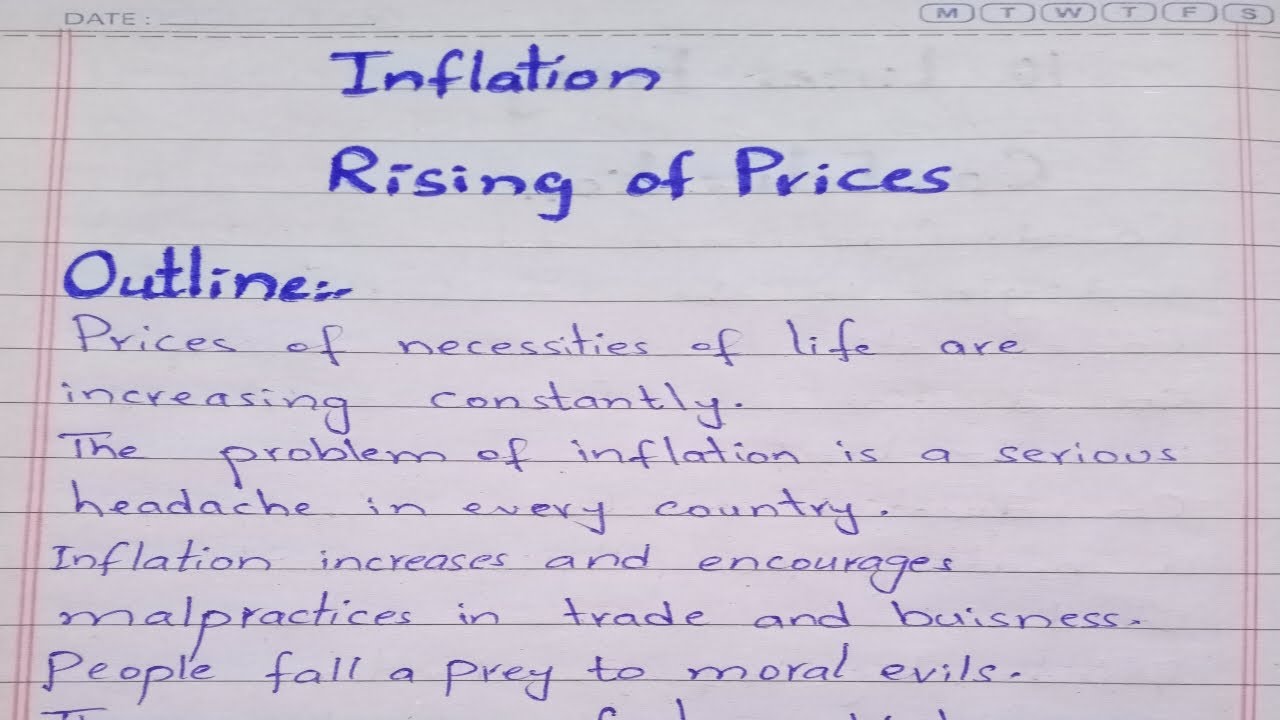 DATE : M T W T F S
Inflation
Rising of Prices
Outline:-
Prices of necessities of life are
increasing constantly.
The problem of inflation is a serious
headache in every country.
Inflation increases and encourages
malpractices in trade and buisness.
People fall a prey to moral evils.